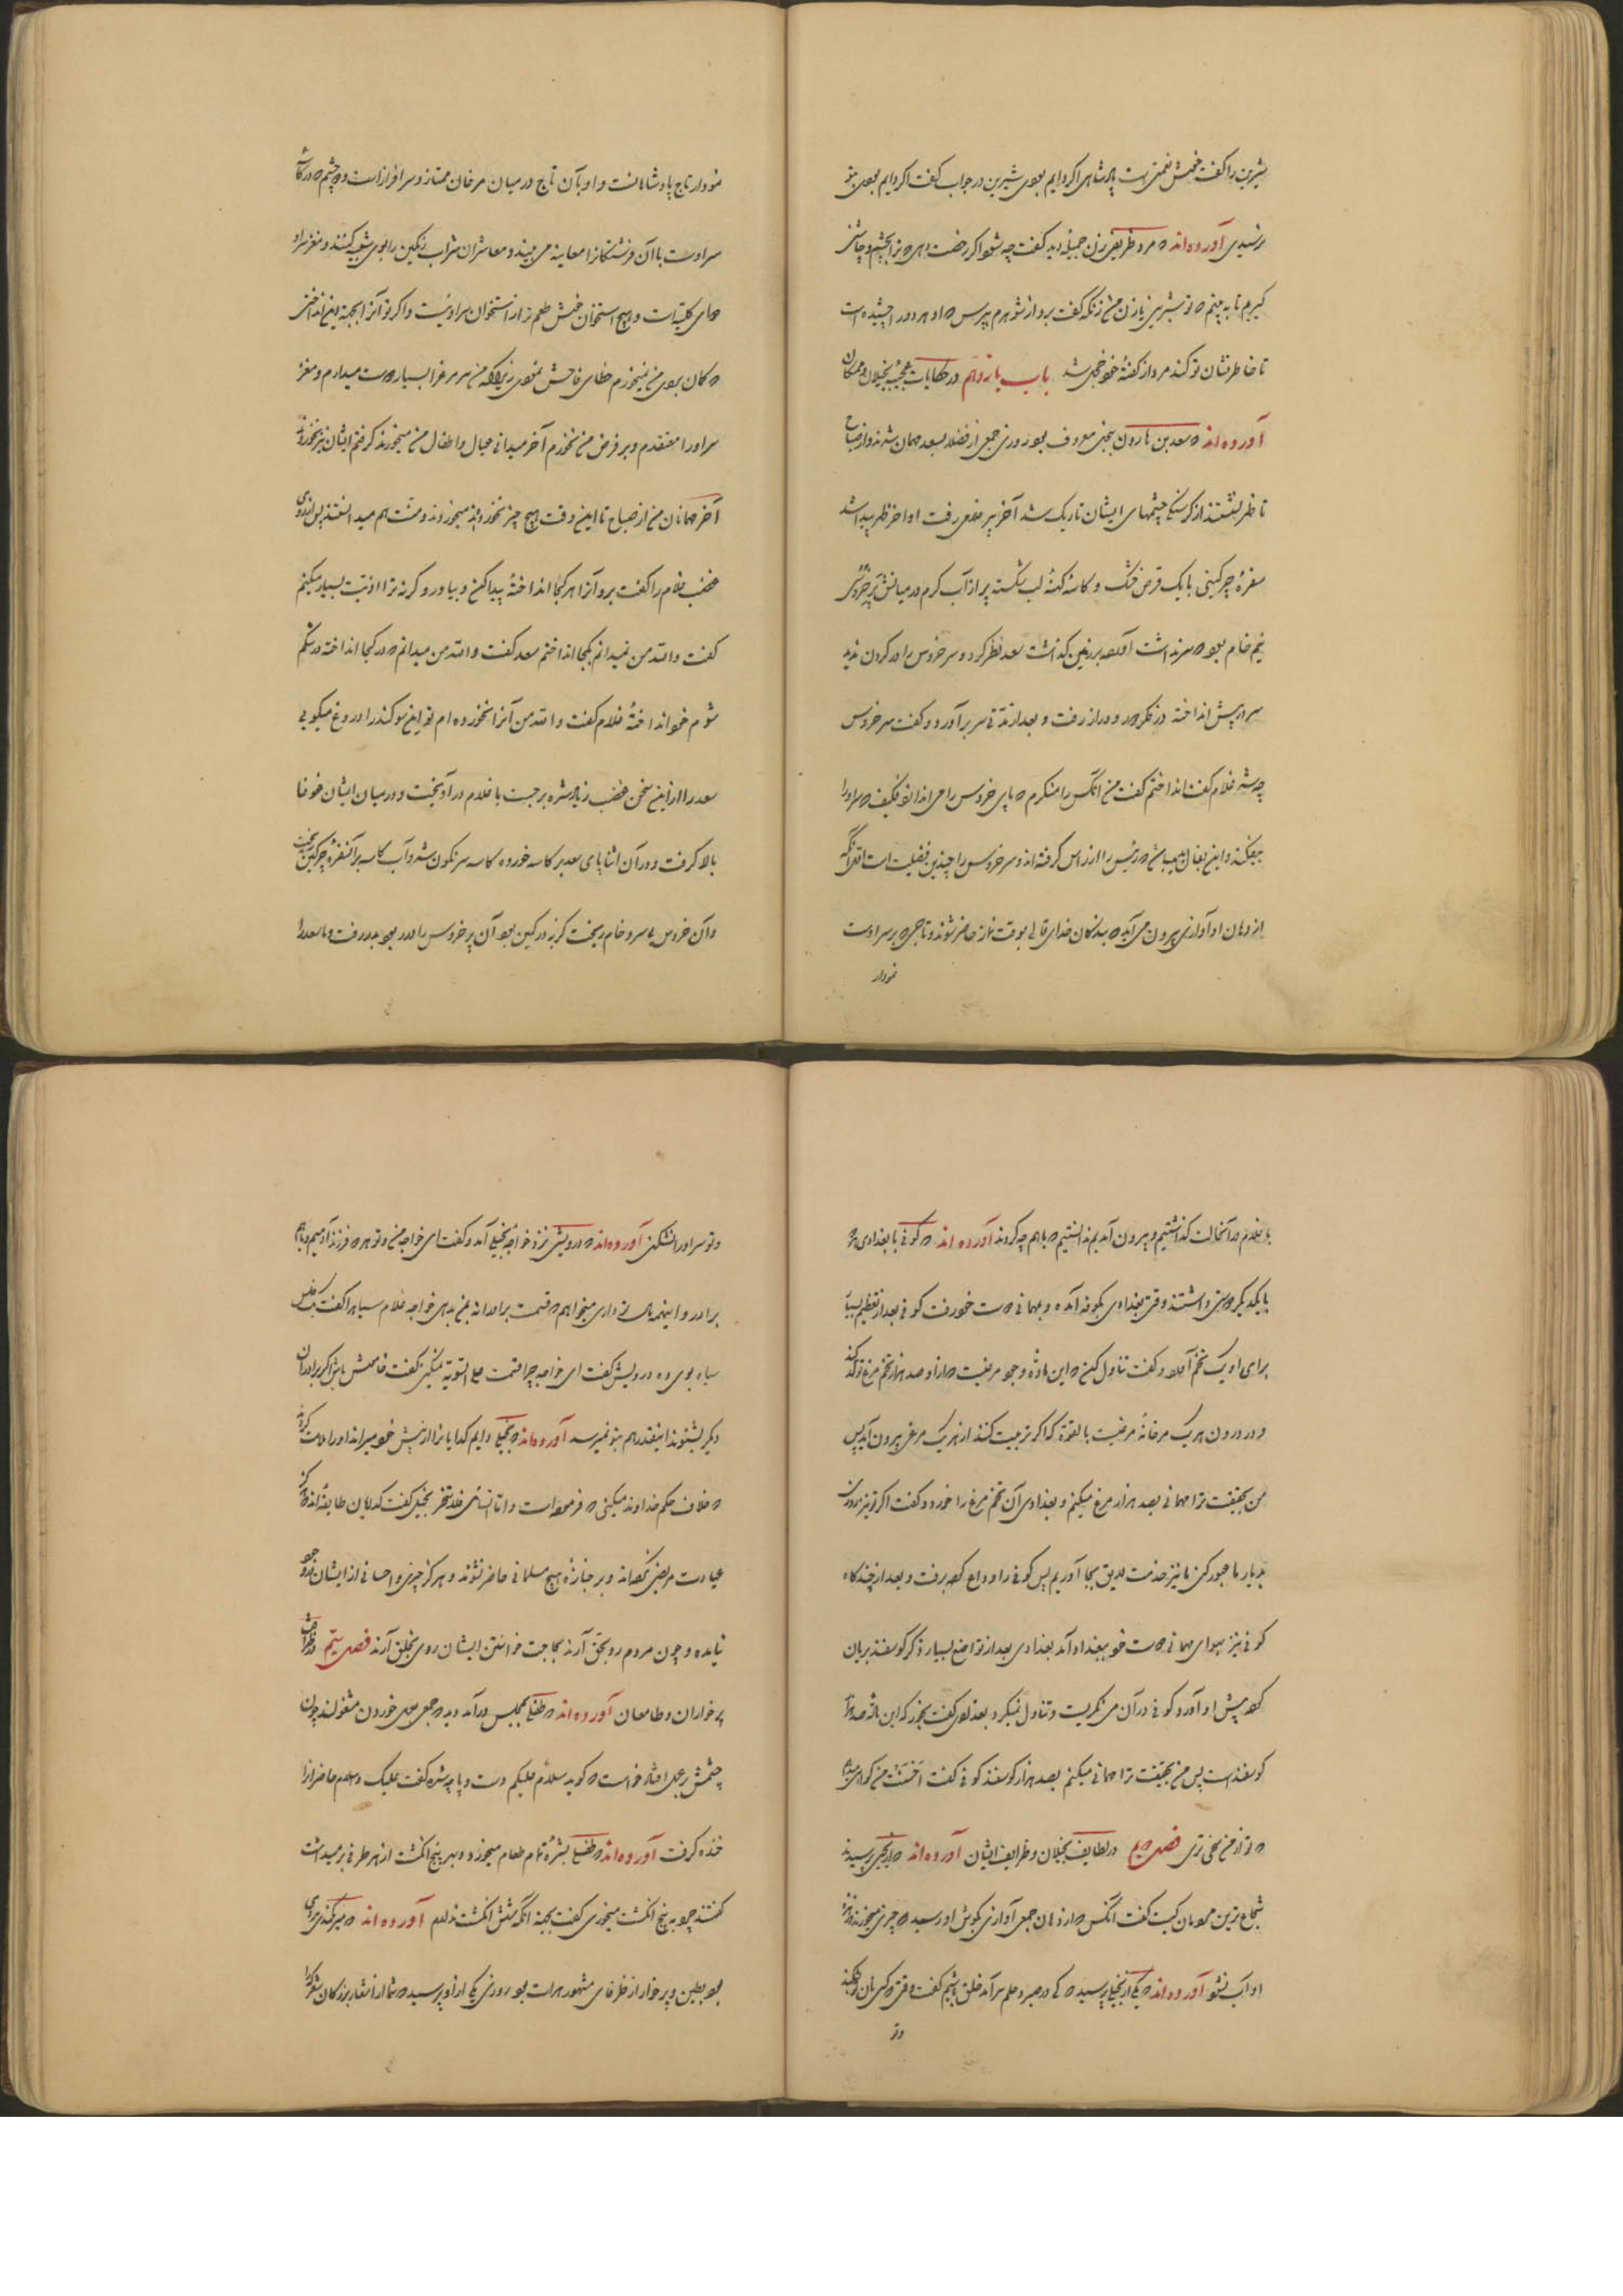 شیرین را گفت خوش نعمتی است پادشاهی اگر دایم بودی شیرین در جواب گفت اگر دایم بودی بتو
نرسیدی آورده‌اند که مرد ظریفی زن جمیله دید گفت چه شود اگر رخصت دهی که ترا بچشم و چاشنی
گیرم تا ببینم که تو شیرینی یا زن من زنکه گفت برو از شوهرم بپرس که او هر دو را چشیده است
تا خاطرنشان تو کند مرد از گفته خود خجل شد باب یازدهم در حکایات عجیبه بخیلان و ممسکان
آورده‌اند که سعد بن هارون ببخل معروف بود روزی جمعی از فضلا بسعد مهمان شدند و از صباح
تا ظهر نشستند از گرسنگی چشمهای ایشان تاریک شد آخر پیر غلامی رفت اواخر ظهر پیدا شد
سفره چرکینی با یک قرص خشک و کاسه کهنه لب شکسته پر از آب گرم و در میانش پیر خروسی
نیم خام بود که سر نداشت آورده بر زمین گذاشت سعد نظر کرد و سر خروس را در گردن ندید
سر در پیش انداخته در فکر دور و دراز رفت و بعد از مدتی سر برآورد و گفت سر خروس
چه شد غلام گفت انداختم گفت من آنکس را منکرم که پای خروس را می اندازد فکیف که سر او را
بیفکند و این بفال میباش که رئیس را از راس گرفته‌اند و سر خروس را چندین فضیلت است اول آنکه
از دهان او آوازی بیرون می‌آید که بندگان خدای تعالی بوقت نماز حاضر شوند و تاجی که بر سر اوست
نمودار
نمودار تاج پادشاهانست و او بآن تاج در میان مرغان ممتاز و سرافراز است و دو چشم که در کاسه
سر اوست با آن فرشتگانرا معاینه می بیند و معاشران شراب رنگین را بدو تشبیه کنند و مغز سر او
دوای کلیه است و هیچ استخوان خوش طعم تر از استخوان سر او نیست و اگر تو آنرا بجهته این انداختی
که کان بودی من نمیخورم خطای فاحش نمودی زیرا که من سر مرغ را بسیار دوست میدارم و مغز
سر او را معتقدم و بر فرض من نخورم آخر میدانی عیال و اطفال من میخورند گرفتم ایشان نیز نخورند
آخر مهمانان من از صباح تا این وقت هیچ چیز نخورده‌اند میخوردند و منت هم میداشتند پس از روی
غضب غلام را گفت برو آنرا هر کجا انداختهٔ پیدا کن و بیاور و گرنه ترا اذیت بسیار میکنم
گفت والله من نمیدانم بکجا انداختم سعد گفت والله من میدانم که در کجا انداختهٔ در شکم
شوم خود انداختهٔ غلام گفت والله من آنرا نخورده‌ام تو این سوگند را دروغ میگویی
سعد را از این سخن غضب زیاده شده برجست با غلام در آویخت و در میان ایشان غوغا
بالا گرفت و در آن اثنا پای سعد بر کاسه خورده کاسه سرنگون شد و آب کاسه بر آن سفره چرکین بریخت
و آن خروس بی سر و خام ریخت گربه در کمین بود آن پیر خروس را در ربود بدر رفت و ما سعد را
با غلام در آنحالت گذاشتیم و بیرون آمدیم ندانستیم که با هم چه کردند آورده‌اند که کوفی با بغدادی
با یکدیگر دوستی داشتند وقتی بغدادی بکوفه آمده و بمهمانی دوست خود رفت کوفی بعد از تعظیم بسیار
برای او یک تخم آورد و گفت تناول کن که این ماده وجود مرغیست که از او صد هزار تخم مرغ تولد کند
و در درون هر یک مرغانه مرغیست بالقوه که اگر تربیت کنند از هر یک مرغی بیرون آید پس
من بحقیقت ترا مهمانی بصد هزار مرغ میکنم و بغدادی آن تخم مرغ را خورد و گفت اگر تو نیز روزی
بدیار ما عبور کنی ما نیز خدمت لایق بجا آوریم پس کوفی را وداع کرده برفت و بعد از چندگاه
کوفی نیز بهوای مهمانی دوست خود ببغداد آمد بغدادی بعد از تواضع بسیار ذکر گوسفند بریان
کرده پیش او آورد کوفی در آن می نگریست و تناول نمیکرد بغدادی گفت بخور که این ماده صد هزار
گوسفند است پس من بحقیقت ترا مهمانی میکنم بصد هزار گوسفند کوفی گفت احسنت من گواهی میدهم
که تو از من سخی تری فصل دوم در لطایف بخیلان و ظرایف ایشان آورده‌اند که از بخیلی پرسیدند
شجاع ترین مردمان کیست گفت آنکس که از دهان جمعی آوازی بگوش او رسید که چیزی میخورند و زهره
او آب نشود آورده‌اند که یکی از بخیلی پرسید که کی در صبر و حلم سرآمد خلق باشیم گفت وقتی که کسی نان تو شکند
و تو
و تو سر او را نشکنی آورده‌اند که درویشی نزد خواجه بخیلی آمد و گفت ای خواجه من و تو هر دو فرزند آدمیم و با هم
برادر و اینهمه مال تو داری میخواهم که قسمت برادرانه بمن بدهی خواجه غلام سیاه را گفت یک فلس
سیاه بوی ده درویش گفت ای خواجه چرا قسمت علی السویه نمیکنی گفت خاموش باش اگر برادران
دیگر بشنوند اینقدر هم بتو نمیرسد آورده‌اند که بخیلی دایم گدایانرا از پیش خود میراند او را ملامت کردند
که خلاف حکم خداوند میکنی که فرموده است و اما السائل فلا تنهر بخیل گفت گدایان طایفه‌اند که هرگز
عیادت مریضی نکرده‌اند و بر جنازه هیچ مسلمانی حاضر نشوند و هرگز خیری و احسانی از ایشان بوجود
نیامده و چون مردم رو بحق آرند بحاجت خواستن ایشان روی بخلق آرند فصل سیم در ظرافت
پرخواران و طامعان آورده‌اند که طفیلی بمجلس درآمد دید که جمعی بخوردن مشغولند چون
چشمش بر محلی افتاد خواست که گوید سلام علیکم دست و پاچه شده گفت علیک و سلام حاضرانرا
خنده گرفت آورده‌اند که طفیلی بشره تمام طعام میخورد و بهر پنج انگشت از هر طرفی بر میداشت
گفتند چرا به پنج انگشت میخوری گفت بجهة آنکه شش انگشت ندارم آورده‌اند که میر کندی مردی
بود بطین و پرخوار از ظرفای مشهور هرات بود روزی یکی از او پرسید که شما از اشعار بزرگان شعر که را